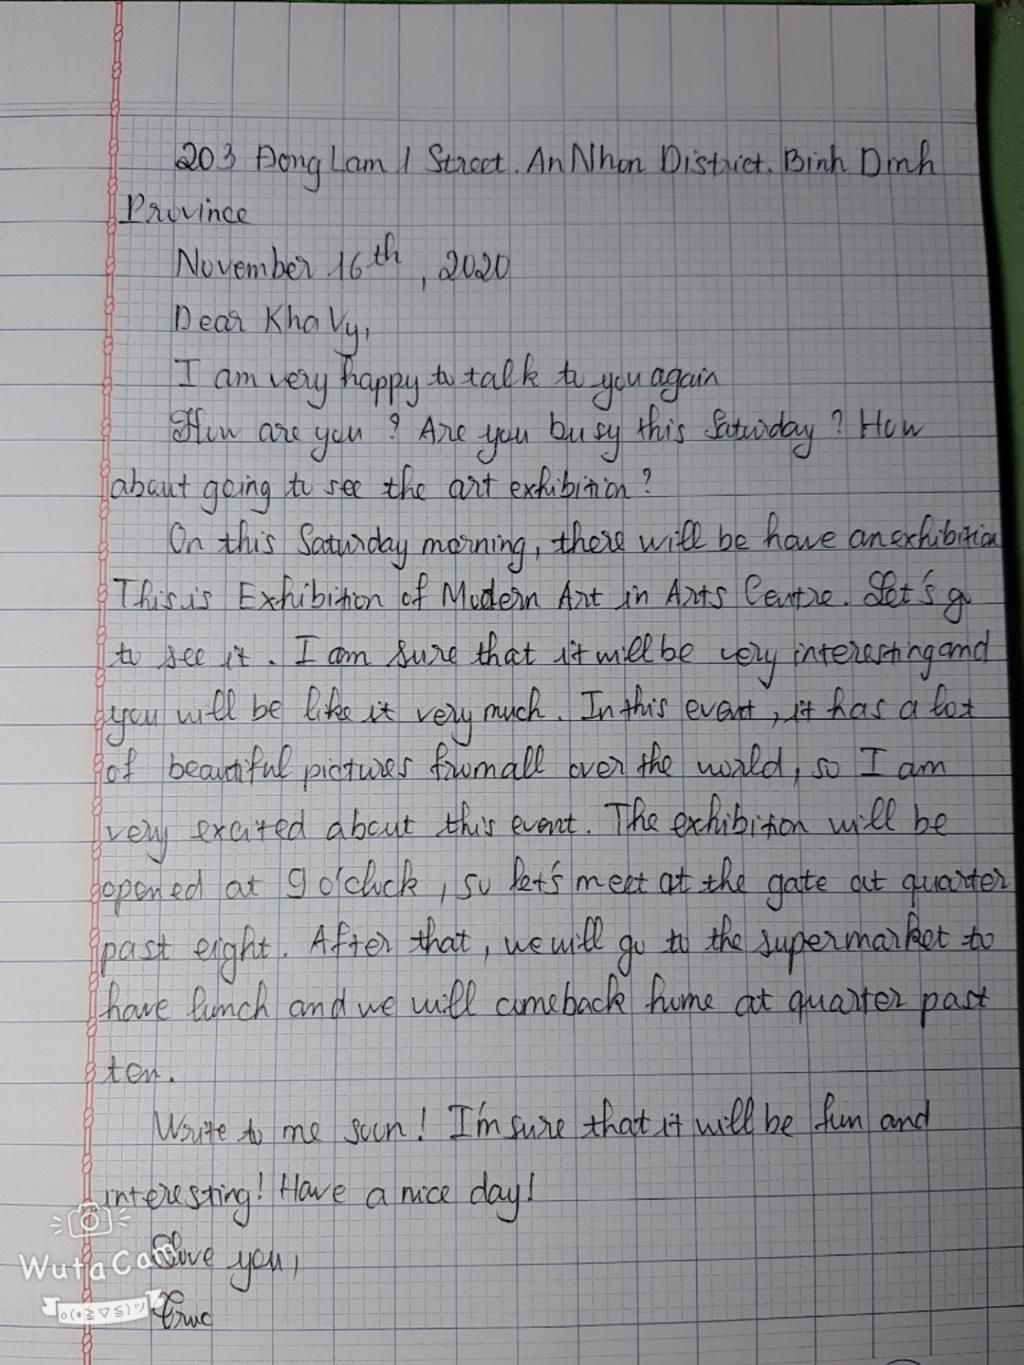 203 Dong Lam 1 Street. An Nhon District. Binh Dinh
Province
November 16th, 2020
Dear Kha Vy,
I am very happy to talk to you again
How are you? Are you busy this Saturday? How
about going to see the art exhibition?
On this Saturday morning, there will be have an exhibition
This is Exhibition of Modern Art in Arts Centre. Let's go
to see it. I am sure that it will be very interesting and
you will be like it very much. In this event, it has a lot
of beautiful pictures from all over the world, so I am
very excited about this event. The exhibition will be
opened at 9 o'clock, so let's meet at the gate at quarter
past eight. After that, we will go to the supermarket to
have lunch and we will come back home at quarter past
ten.
Write to me soon! I'm sure that it will be fun and
interesting! Have a nice day!
Love you,
Truc
WutaCam
o(*≧▽≦)ツ